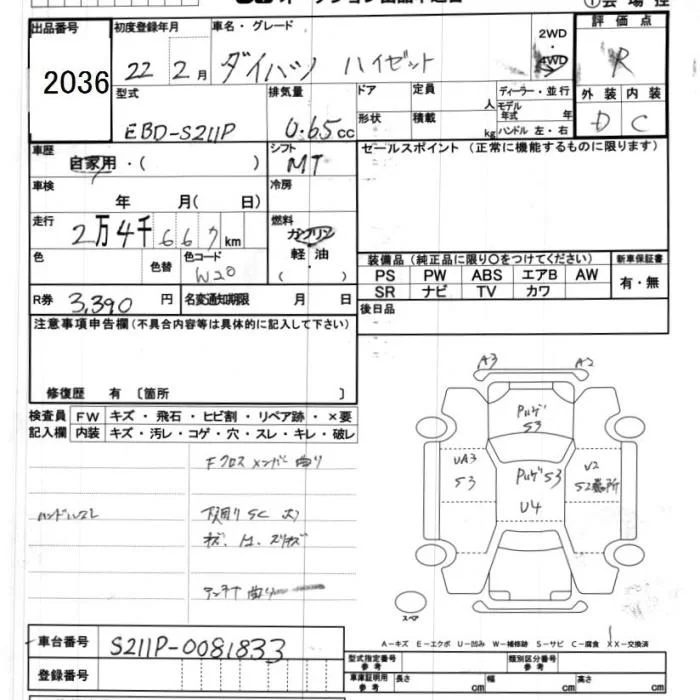 出品番号 初度登録年月 車名・グレード 評価点
2036 22年 2月 ダイハツ ハイゼット 2WD 4WD R
型式 排気量 ドア 定員 人 ディーラー・並行 外装 内装
EBD-S211P 0.65cc 形状 積載 kg モデル年式 年 ハンドル 左・右 D C
車歴 自家用・( ) シフト MT セールスポイント (正常に機能するものに限ります)
車検 年 月( 日) 冷房
走行 2万4千667km 燃料 ガソリン 軽・油 ( )
色 色替 色コード W20 装備品 (純正品に限り○をつけてください) 新車保証書
PS PW ABS エアB AW 有・無
SR ナビ TV カワ
R券 3,390円 名変通知期限 月 日 後日品
注意事項申告欄 (不具合内容等は具体的に記入して下さい)
修復歴 有 〔箇所 〕
検査員 FW キズ・飛石・ヒビ割・リペア跡・×要
記入欄 内装 キズ・汚レ・コゲ・穴・スレ・キレ・破レ
Fクロスメンバー曲り
ハンドルスレ 下廻り SC 大
アンテナ曲り
A3 A2
S3
UA3 S3 S3 U2 S2
U4
スペア
A-キズ E-エクボ U-凹み W-補修跡 S-サビ C-腐食 XX-交換済
車台番号 S211P-0081833
登録番号 型式指定番号 参考 類別区分番号 参考
車庫証明用 参考 長さ cm 幅 cm 高さ cm